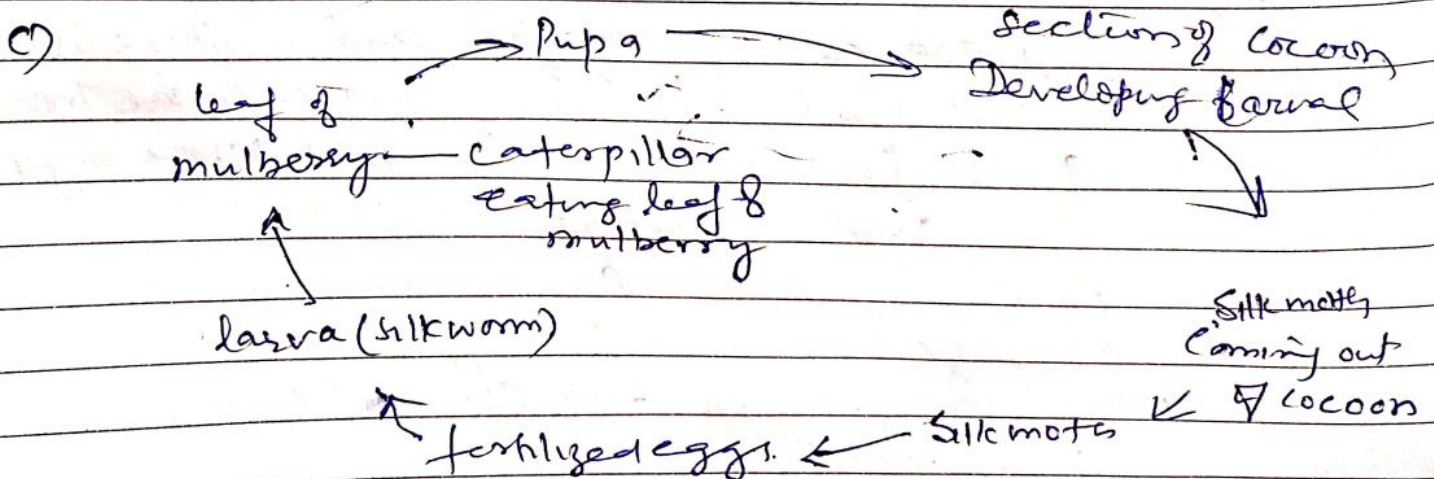 c)
Pupa
Section of Cocoon
Developing Larval
leaf of
mulberry
caterpillar
eating leaf of
mulberry
larva (silkworm)
Silk moth
Coming out
of cocoon
Silk moth
fertilized eggs.